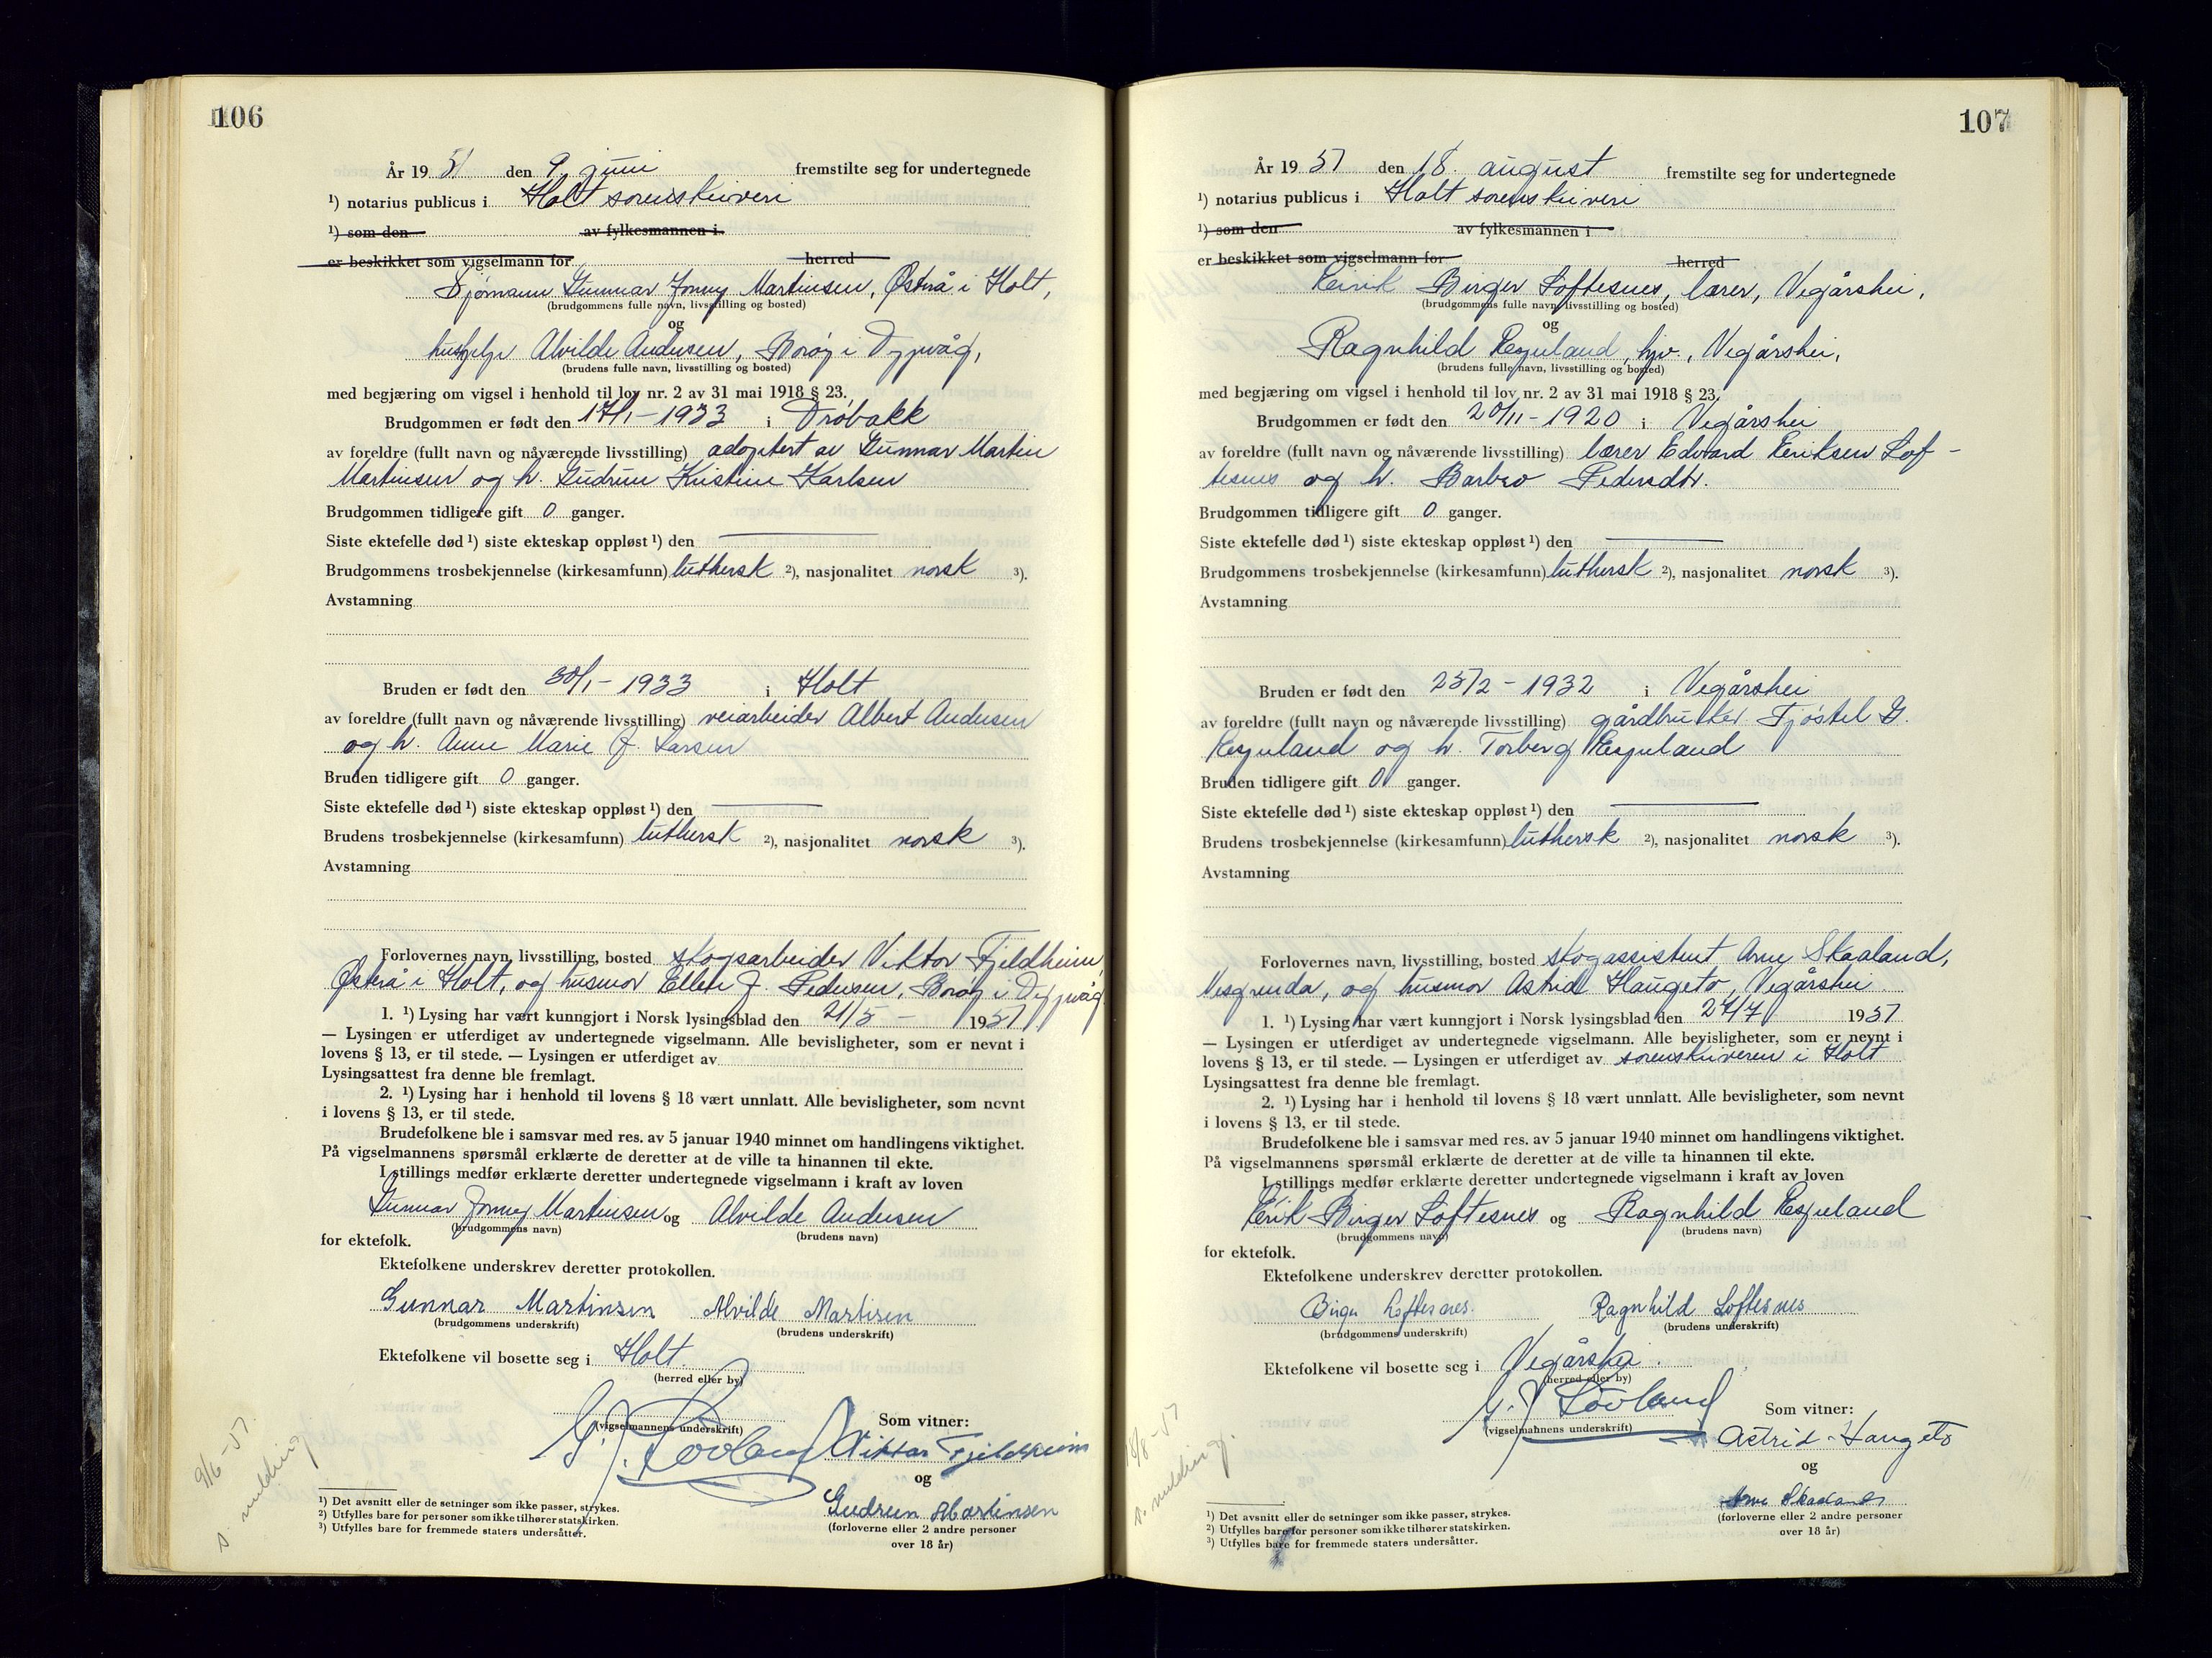 106
År 19 51 den 9. juni fremstilte seg for undertegnede
¹) notarius publicus i Holt sorenskriveri
¹) som den av fylkesmannen i
er beskikket som vigselmann for herred
Sjømann Gunnar Jonny Martinsen, Østerå i Holt,
(brudgommens fulle navn, livsstilling og bosted)
og
hushjelp Alvilde Andersen, Borøy i Dypvåg,
(brudens fulle navn, livsstilling og bosted)
med begjæring om vigsel i henhold til lov nr. 2 av 31 mai 1918 § 23.
Brudgommen er født den 17/1 - 1933 i Drøbakk
av foreldre (fullt navn og nåværende livsstilling) adoptert av Gunnar Martin
Martinsen og h. Gudrun Kristine Karlsen
Brudgommen tidligere gift 0 ganger.
Siste ektefelle død ¹) siste ekteskap oppløst ¹) den
Brudgommens trosbekjennelse (kirkesamfunn) luthersk ²), nasjonalitet norsk ³).
Avstamning
Bruden er født den 30/1 - 1933 i Holt
av foreldre (fullt navn og nåværende livsstilling) veiarbeider Albert Andersen
og h. Anne Marie J. Larsen
Bruden tidligere gift 0 ganger.
Siste ektefelle død ¹) siste ekteskap oppløst ¹) den
Brudens trosbekjennelse (kirkesamfunn) luthersk ²), nasjonalitet norsk ³).
Avstamning
Forlovernes navn, livsstilling, bosted skogsarbeider Viktor Fjeldheim,
Østerå i Holt, og husmor Ellen J. Pedersen, Borøy i Dypvåg
1. ¹) Lysing har vært kunngjort i Norsk lysingsblad den 21/5 - 1951
— Lysingen er utferdiget av undertegnede vigselmann. Alle bevisligheter, som er nevnt i
lovens § 13, er til stede. — Lysingen er utferdiget av
Lysingsattest fra denne ble fremlagt.
2. ¹) Lysing har i henhold til lovens § 18 vært unnlatt. Alle bevisligheter, som nevnt
i lovens § 13, er til stede.
Brudefolkene ble i samsvar med res. av 5 januar 1940 minnet om handlingens viktighet.
På vigselmannens spørsmål erklærte de deretter at de ville ta hinannen til ekte.
I stillings medfør erklærte deretter undertegnede vigselmann i kraft av loven
Gunnar Jonny Martinsen og Alvilde Andersen
(brudgommens navn) (brudens navn)
for ektefolk.
Ektefolkene underskrev deretter protokollen.
Gunnar Martinsen Alvilde Martisen
(brudgommens underskrift) (brudens underskrift)
Ektefolkene vil bosette seg i Holt.
(herred eller by)
Som vitner:
(vigselmannens underskrift)
G. J. Løvland Viktor Fjeldheim
og
Gudrun Martinsen
(forloverne eller 2 andre personer
over 18 år)
9/6 - 51.
s. melding
¹) Det avsnitt eller de setninger som ikke passer, strykes.
²) Utfylles bare for personer som ikke tilhører statskirken.
³) Utfylles bare for fremmede staters undersåtter.
107
År 19 51 den 18. august fremstilte seg for undertegnede
¹) notarius publicus i Holt sorenskriveri
¹) som den av fylkesmannen i
er beskikket som vigselmann for herred
Eirik Birger Loftesnes, lærer, Vegårshei,
(brudgommens fulle navn, livsstilling og bosted)
og
Ragnhild Espeland, hjv., Vegårshei,
(brudens fulle navn, livsstilling og bosted)
med begjæring om vigsel i henhold til lov nr. 2 av 31 mai 1918 § 23.
Brudgommen er født den 20/11 - 1920 i Vegårshei
av foreldre (fullt navn og nåværende livsstilling) lærer Edvard Eeriksen Lof-
tesnes og h. Barbro Pedersdtr.
Brudgommen tidligere gift 0 ganger.
Siste ektefelle død ¹) siste ekteskap oppløst ¹) den
Brudgommens trosbekjennelse (kirkesamfunn) luthersk ²), nasjonalitet norsk ³).
Avstamning
Bruden er født den 25/2 - 1932 i Vegårshei
av foreldre (fullt navn og nåværende livsstilling) gårdbruker Tjøstel G.
Espeland og h. Torberg Espeland
Bruden tidligere gift 0 ganger.
Siste ektefelle død ¹) siste ekteskap oppløst ¹) den
Brudens trosbekjennelse (kirkesamfunn) luthersk ²), nasjonalitet norsk ³).
Avstamning
Forlovernes navn, livsstilling, bosted skogassistent Arne Skaaland,
Vesgrenda, og husmor Astrid Haugeto, Vegårshei.
1. ¹) Lysing har vært kunngjort i Norsk lysingsblad den 27/7 1951
— Lysingen er utferdiget av undertegnede vigselmann. Alle bevisligheter, som er nevnt i
lovens § 13, er til stede. — Lysingen er utferdiget av sorenskriveren i Holt
Lysingsattest fra denne ble fremlagt.
2. ¹) Lysing har i henhold til lovens § 18 vært unnlatt. Alle bevisligheter, som nevnt
i lovens § 13, er til stede.
Brudefolkene ble i samsvar med res. av 5 januar 1940 minnet om handlingens viktighet.
På vigselmannens spørsmål erklærte de deretter at de ville ta hinannen til ekte.
I stillings medfør erklærte deretter undertegnede vigselmann i kraft av loven
Eirik Birger Loftesnes og Ragnhild Espeland
(brudgommens navn) (brudens navn)
for ektefolk.
Ektefolkene underskrev deretter protokollen.
Birger Loftesnes. Ragnhild Loftesnes
(brudgommens underskrift) (brudens underskrift)
Ektefolkene vil bosette seg i Vegårshei.
(herred eller by)
G. J. Løvland Som vitner:
(vigselmannens underskrift) Astrid Haugeto
og
Arne Skaaland
(forloverne eller 2 andre personer
over 18 år)
18/8 - 51
s. melding.
¹) Det avsnitt eller de setninger som ikke passer, strykes.
²) Utfylles bare for personer som ikke tilhører statskirken.
³) Utfylles bare for fremmede staters undersåtter.